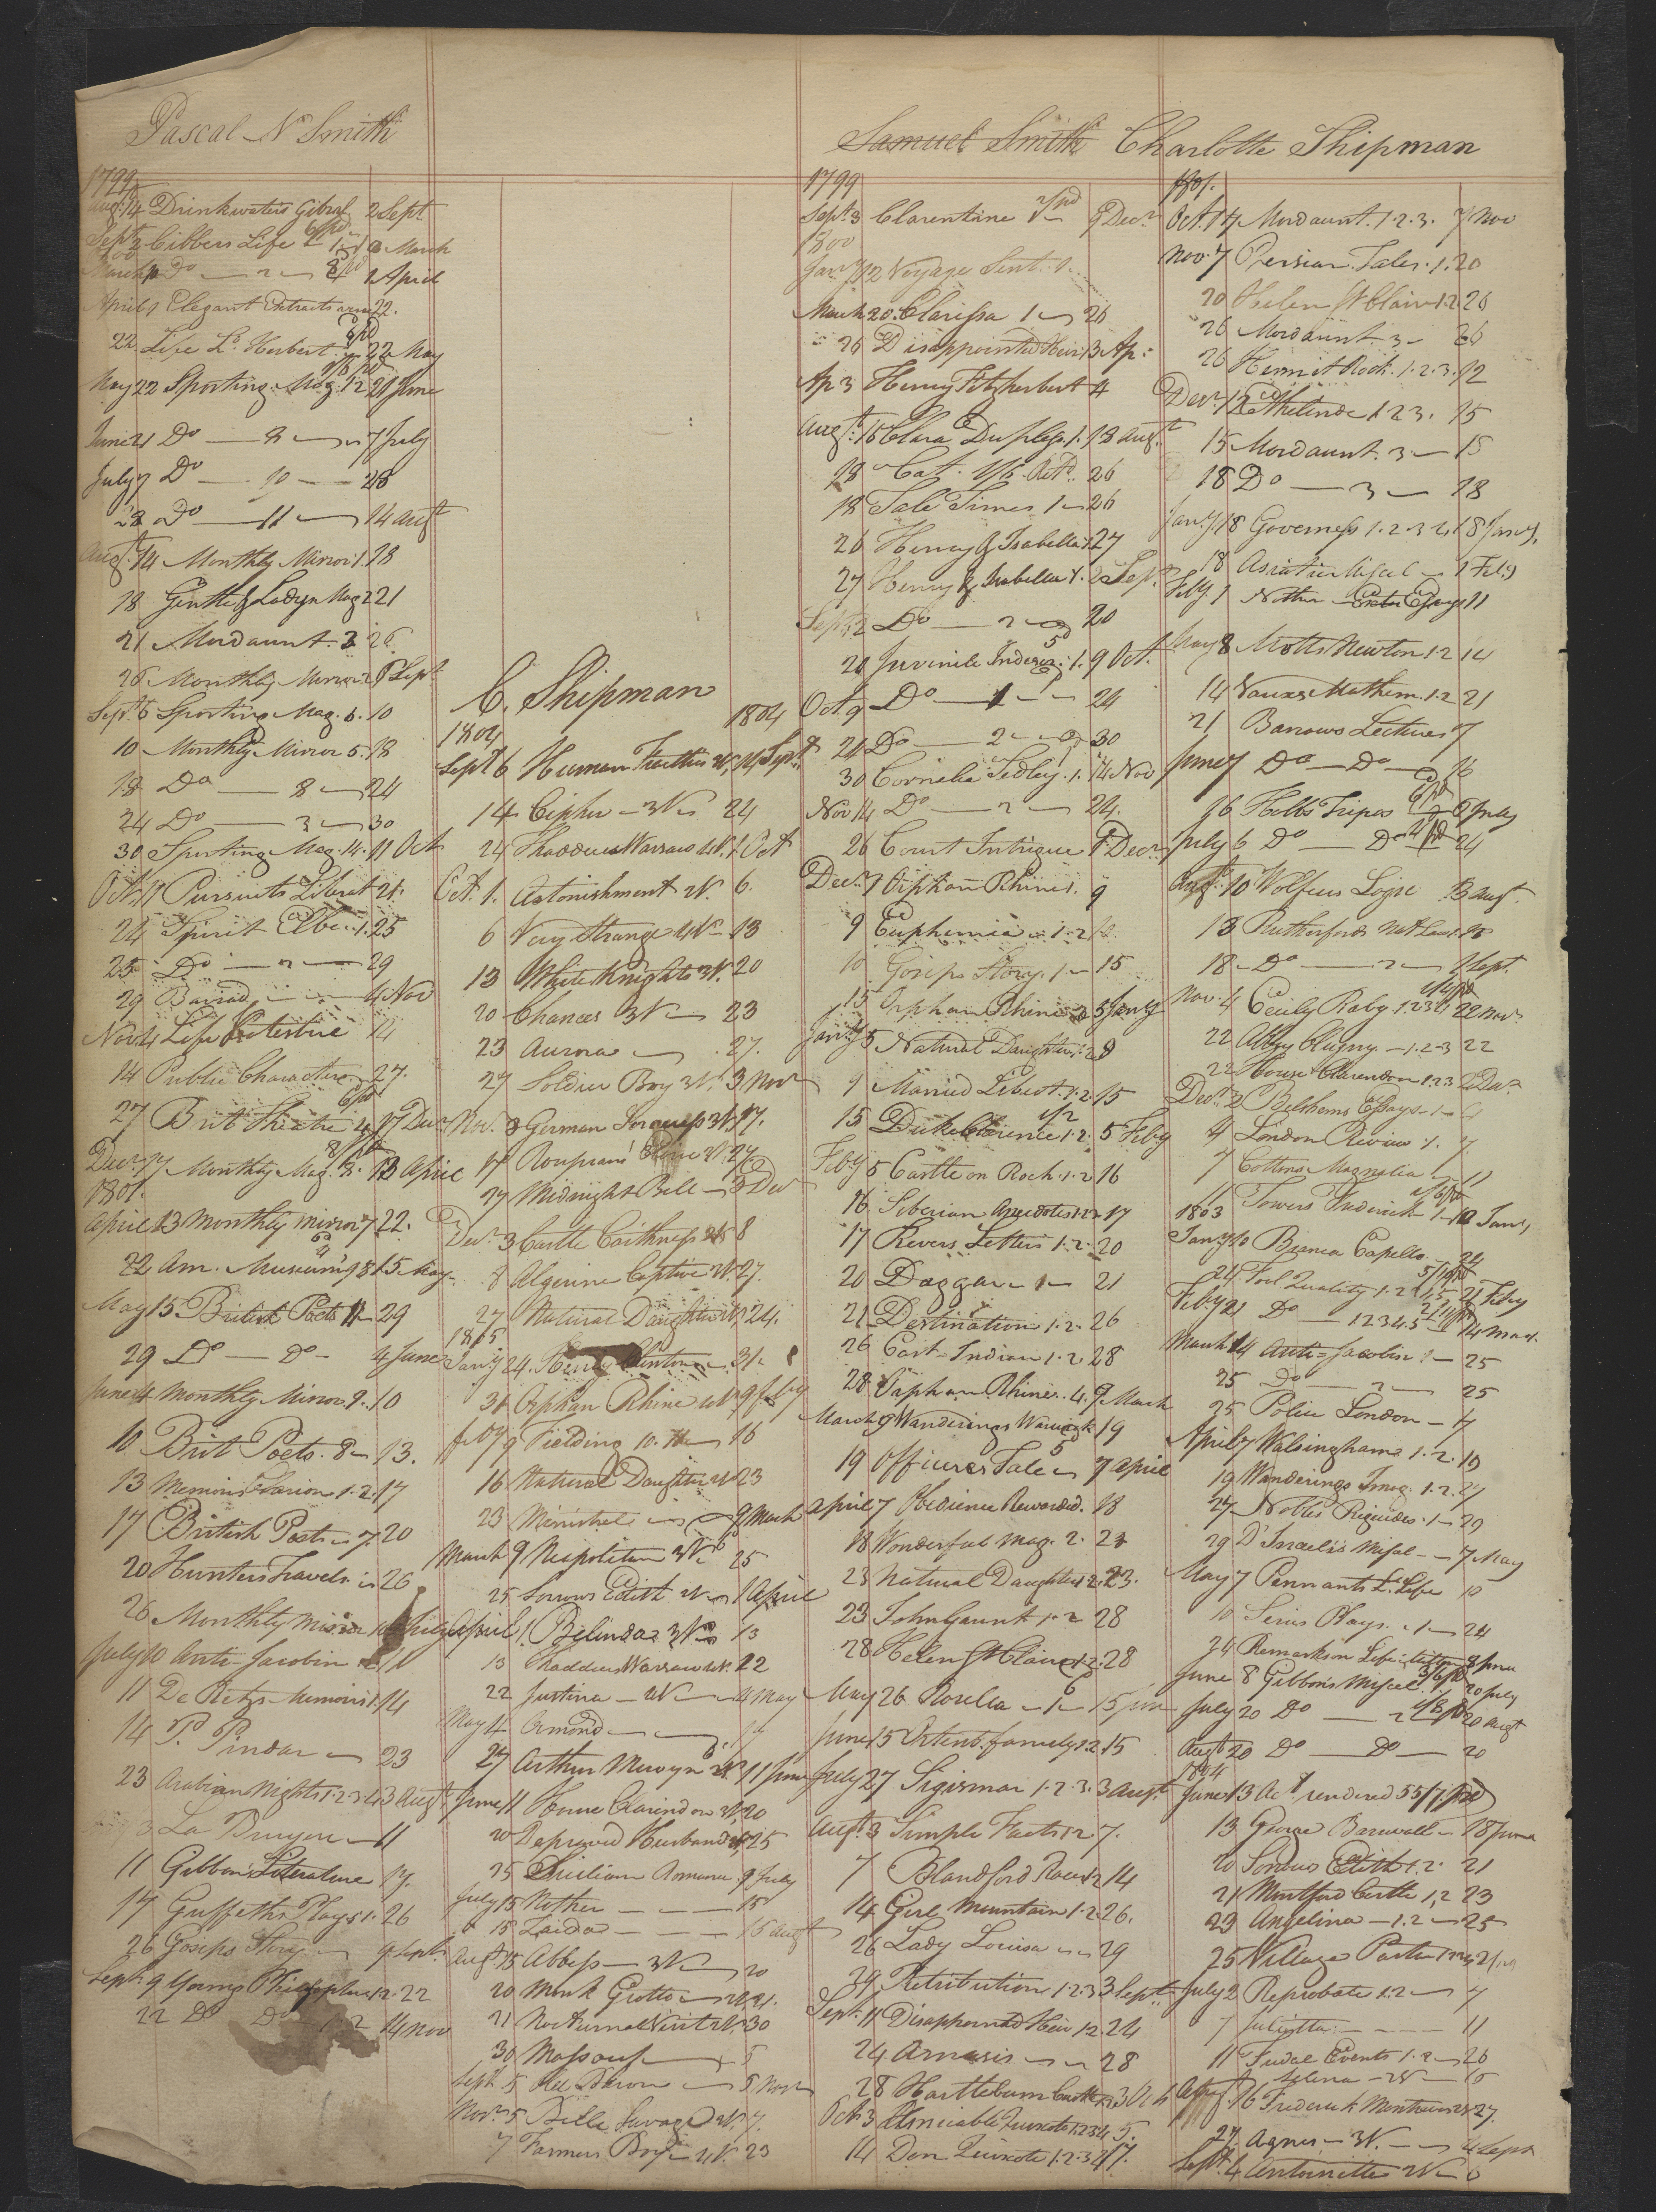 Pascal N Smith
1799
Augt 14 Drinkwaters Gibral 2 Sept
Sept 2 Cibbers Life 1 March
March Do 2 1 April
April 1 Elegant Extracts 22.
22 Life Ld. Herbert 22 May
May 22 Sporting Mag. 1.2 21 June
June 21 Do 8 7 July
July 7 Do 10 28
28 Do 11 14 Augt
Augt 14 Monthly Mirror 1. 18
18 Gentle & Ladys Mag 2 21
21 Mordaunt. 3 26
26 Monthly Mirror 2 6 Sept
Sept 6 Sporting Mag. 6. 10
10 Monthly Mirror 5. 18
18 Do 8 24
24 Do 3 30
30 Sporting Mag. 14. 11 Oct
Oct. 11 Pursuits Literat 21.
24 Spirit Elbe. 1. 25
25 Do 2 29
29 4 Nov
Nov 4 Life 14
14 Public Characters 27.
27 Brit Theatre 17 Decr
Decr 17 Monthly Mag. 3. 13 April
1801.
April 13 Monthly Mirror 7 22.
22 Am. Museum 15 May
May 15. British Poets 11 29
29 Do Do 4 June
June 4 Monthly Mirror 9. 10
10 Brit Poets. 8 13.
13 Memoirs 1.2. 17
17 British Poets 7. 20
20 Hunters Travels 26
26 Monthly Mirror 10 July
July 10 Anti Jacobin 11
11 De Retz's Memoirs 1. 14
14 P. Pindar 23
23 Arabian Nights 1.2.3.4. 3 Augt
3 La Bruyere 11
11 Gibbon's Literature 17.
17 Griffeths Plays 1. 26
26 Gosips Story 9 Sept.
Sept. 9 Young Philosopher 1.2. 22
22 Do Do 1.2 14 Nov
C. Shipman
1804 1804
Sept 6 Human Frailties 14 Sept
14 Cipher 3V 24
24 Thaddeus Warsaw 4V. 1 Oct
Oct. 1. Astonishment 2V. 6.
6 Very Strange 4V 13
13 White Knights 3V. 20
20 Chances 3V 23
23 Aurora 27.
27 Soldier Boy 3V. 3 Novr
Nov. 3 German Sorceress 3V. 17.
17 27.
27 Midnight Bell 3 Decr
Decr 3 Castle Caithness 2V 8
8 Algerine Captive 2V. 27.
27 Natural Daughter 24.
1805
Jany 24. Henry Clinton 31.
31 Orphan Rhine 4V. 9 Feby
Feby 9 Fielding 10. 16
16 Natural Daughter 2V 23
23 Minstrel 9 March
March 9 Neapolitan 3V. 25
25 Sorrows Edith 2V 1 April
April 1. Belinda 3V 13
13 Thaddeus Warsaw 4V. 22
22 Justina 2V 4 May
May 4 Ormond 27
27 Arthur Mervyn 2V. 11 June
June 11 House Clarendon 3V. 20
20 Depraved Husband 25
25 Sicilian Romance. 9 July
July 15 Nother 15
15 Zaida 15 Augt
Augt 15 Abbess 3V. 20
20 Monk Grotto 2V. 21.
21 Nocturnal Visit 4V. 30
30 Massouf 5
Sept. 5 Red Baron 5 Novr
Novr 5 Belle Savage 2V. 7.
7 Farmers Boy 4V. 23
Samuel Smith Charlotte Shipman
1799
Sept. 3 Clarentine 9 Decr
1800
Jany 12 Voyage Sent. 1.
March 20. Clarissa 1 26
26 Disappointed Heir 1. 3 Ap:
Ap 3 Henry Fitzherbert 4
Augt. 16 Clara Duplesis. 1. 18 Augt.
18 Cat. 26
18 Tale Times 1 26
26 Henry & Isabella 1 27
27 Henry & Isabella 1. 2 Sept
Sept 2 Do 2 20
20 Juvenile Indiscr. 1. 9 Oct.
Oct. 9 Do 1 24
24 Do 2 30
30 Cornelia Sedley. 1. 14 Nov
Nov 14 Do 2 24.
26 Court Intrigue 1 Decr
Decr. 1 Orphan Rhine 1. 9
9 Euphemia 1.2
10 Gosips Story. 1 15
15 Orphan Rhine 2 5 Jany
Jany 5 Natural Daughter 1.2 9
9 Married Libert. 1.2. 15
15 Duke Clarence 1.2. 5 Feby
Feby 5 Castle on Rock. 1.2 16
16 Siberian Anecdotes 1.2.3 17
17 Revers Letters 1.2. 20
20 Daggar 1 21
21 Destination 1.2. 26
26 East-Indian 1.2. 28
28 Orphan Rhine. 4. 9 March
March 9 Wanderings Warwick 19
19 Officers Tale 7 April
April 7 Obedience Rewarded. 18
18 Wonderful Mag. 2. 23
23 Natural Daughter 1.2. 23.
23 John Gaunt 1.2 28
28 Helen St Claire 1.2. 28
May 26 Rosella 1 15 June
June 15 Ortenb. family 1.2. 15
July 27 Sigismar 1.2.3. 3 Augt.
Augt. 3 Simple Facts 1.2 7.
7 Blandford Races 1.2 14
14 Girl Mountain 1.2 26.
26 Lady Louisa 29
29 Retribution 1.2.3 3 Sept.
Sept. 11 Disappointed Heir 1.2. 24
24 Arnasis 28
28 Hartlebourn Castle 1.2. 3 Oct
Oct. 3 Amicable Quixote 1.2.3.4. 5.
14 Don Quixote 1.2.3.4 17.
1801.
Oct. 17 Mordaunt. 1.2.3. 7 Nov
Nov. 7 Persian Tales. 1. 20
20 Helen St Clair 1.2 26
26 Mordaunt 3 26
26 Hermit Rock. 1.2.3. 12
Decr. 12 Ethelinde 1.2.3. 15
15 Mordaunt. 3 15
18 Do 3 18
Jany 18 Governess 1.2.3.4. 18 Jany.
18 Asiatic Miscel 1 Feby
Feby. 1 Nother Essays 11
May 8 Motts Newton 1.2 14
14 Vauxs Mathem. 1.2 21
21 Barrows Lectures 7
June 7 Do Do 16
16 Hobbs Tripos 6 July
July 6 Do Do 24
Augt. 10 Wolfius Logic 13 Augt.
13 Rutherfords Nat Law 1. 18
18 Do 2 1 Sept.
Nov. 4 Cecily Raby 1.2.3.4 22 Novr.
22 Abby Clugny. 1.2.3 22
22 House Clarendon 1.2.3 2 Decr
Decr. 2 Belshams Essays 1 4
4 London Review 1. 7.
7 Cottons Magnalia 11
11 Towers Frederick 1 10 Jany
1803
Jany 10 Bianca Capello 24
24 Fool Quality 1.2 21 Feby
Feby 21 Do 1.2.3.4.5 14 Mar.
March 14 Anti-Jacobin 1 25
25 Do 2 25
25 Police London 7
April 7 Walsingham 1.2. 19
19 Wanderings Imag. 1.2. 27
27 Nobles 1 29
29 D'Israelis Miscel 7 May
May 7 Pennants L. Life 10
10 Plays. 1 24
24 Remarks on Life 8 June
June 8 Gibbon's Miscel. 1 20 July
July 20 Do 2 20 Augt
Augt 20 Do Do 20
1804
June 13 Act. rendered 55/7 pd
13 George Barnwell 18 June
20 Sorrows Edith 1.2. 21
21 Montford Castle 1.2 23
23 Angelina 1.2 25
25 Village Pastor
July 2 Reprobate 1.2 7
7 Julietta 11
11 Feudal Events 1.2 26
Selena
Augt. 16 Frederick Montravers 27.
27. Agnes 3V. 4 Sept
Sept 4 Antoinette 2V 6